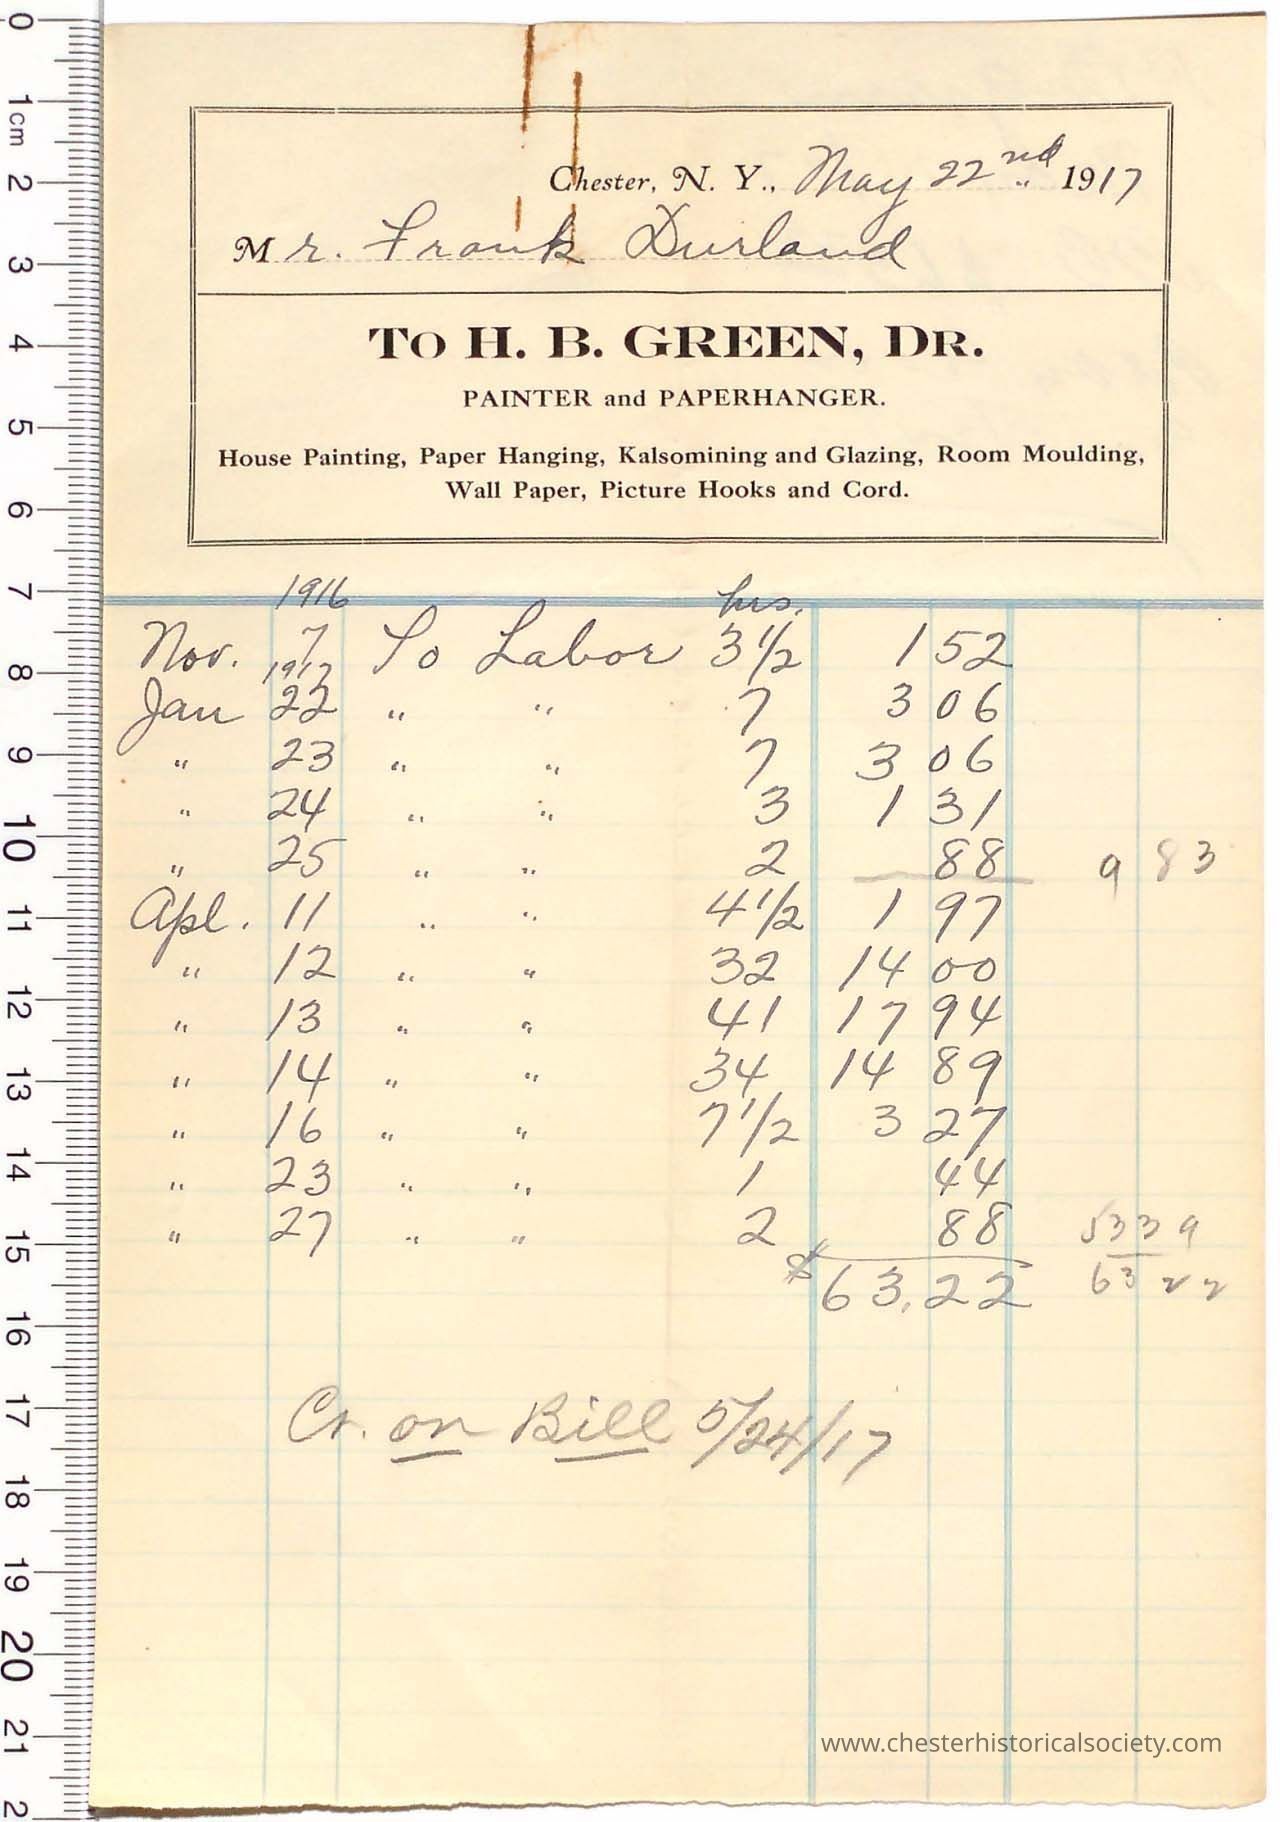 Chester, N. Y., May 22nd 1917
Mr. Frank Durland
To H. B. GREEN, DR.
PAINTER and PAPERHANGER.
House Painting, Paper Hanging, Kalsomining and Glazing, Room Moulding,
Wall Paper, Picture Hooks and Cord.
1916 hrs.
Nov. 7 To Labor 3 1/2 1 52
1917
Jan 22 " " 7 3 06
" 23 " " 7 3 06
" 24 " " 3 1 31
" 25 " " 2 88 9 83
Apl. 11 " " 4 1/2 1 97
" 12 " " 32 14 00
" 13 " " 41 17 94
" 14 " " 34 14 89
" 16 " " 7 1/2 3 27
" 23 " " 1 44
" 27 " " 2 88 53 39
$63.22 63 22
Cr. on Bill 5/24/17
www.chesterhistoricalsociety.com
0
1cm
2
3
4
5
6
7
8
9
10
11
12
13
14
15
16
17
18
19
20
21
2